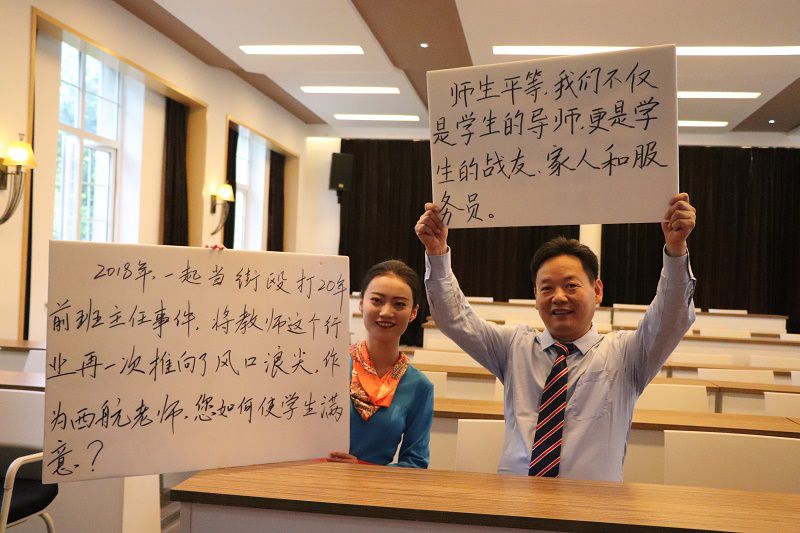 2018年,一起当街殴打20年
前班主任事件,将教师这个行
业再一次推向了风口浪尖,作
为西航老师,您如何使学生满
意?
师生平等,我们不仅
是学生的导师,更是学
生的战友、家人和服
务员。